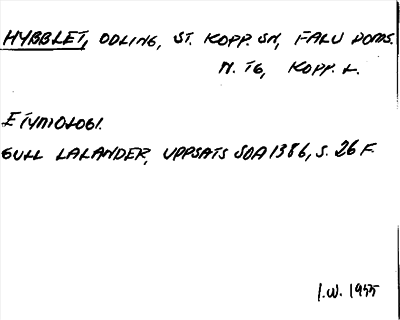 HYBBLET, ODLING, ST. KOPP. SN, FALU DOMS.
N. TG, KOPP. L.
ETYMOLOGI.
GULL LALANDER, UPPSATS SOA 1386, S. 26 F.
I.W. 1955